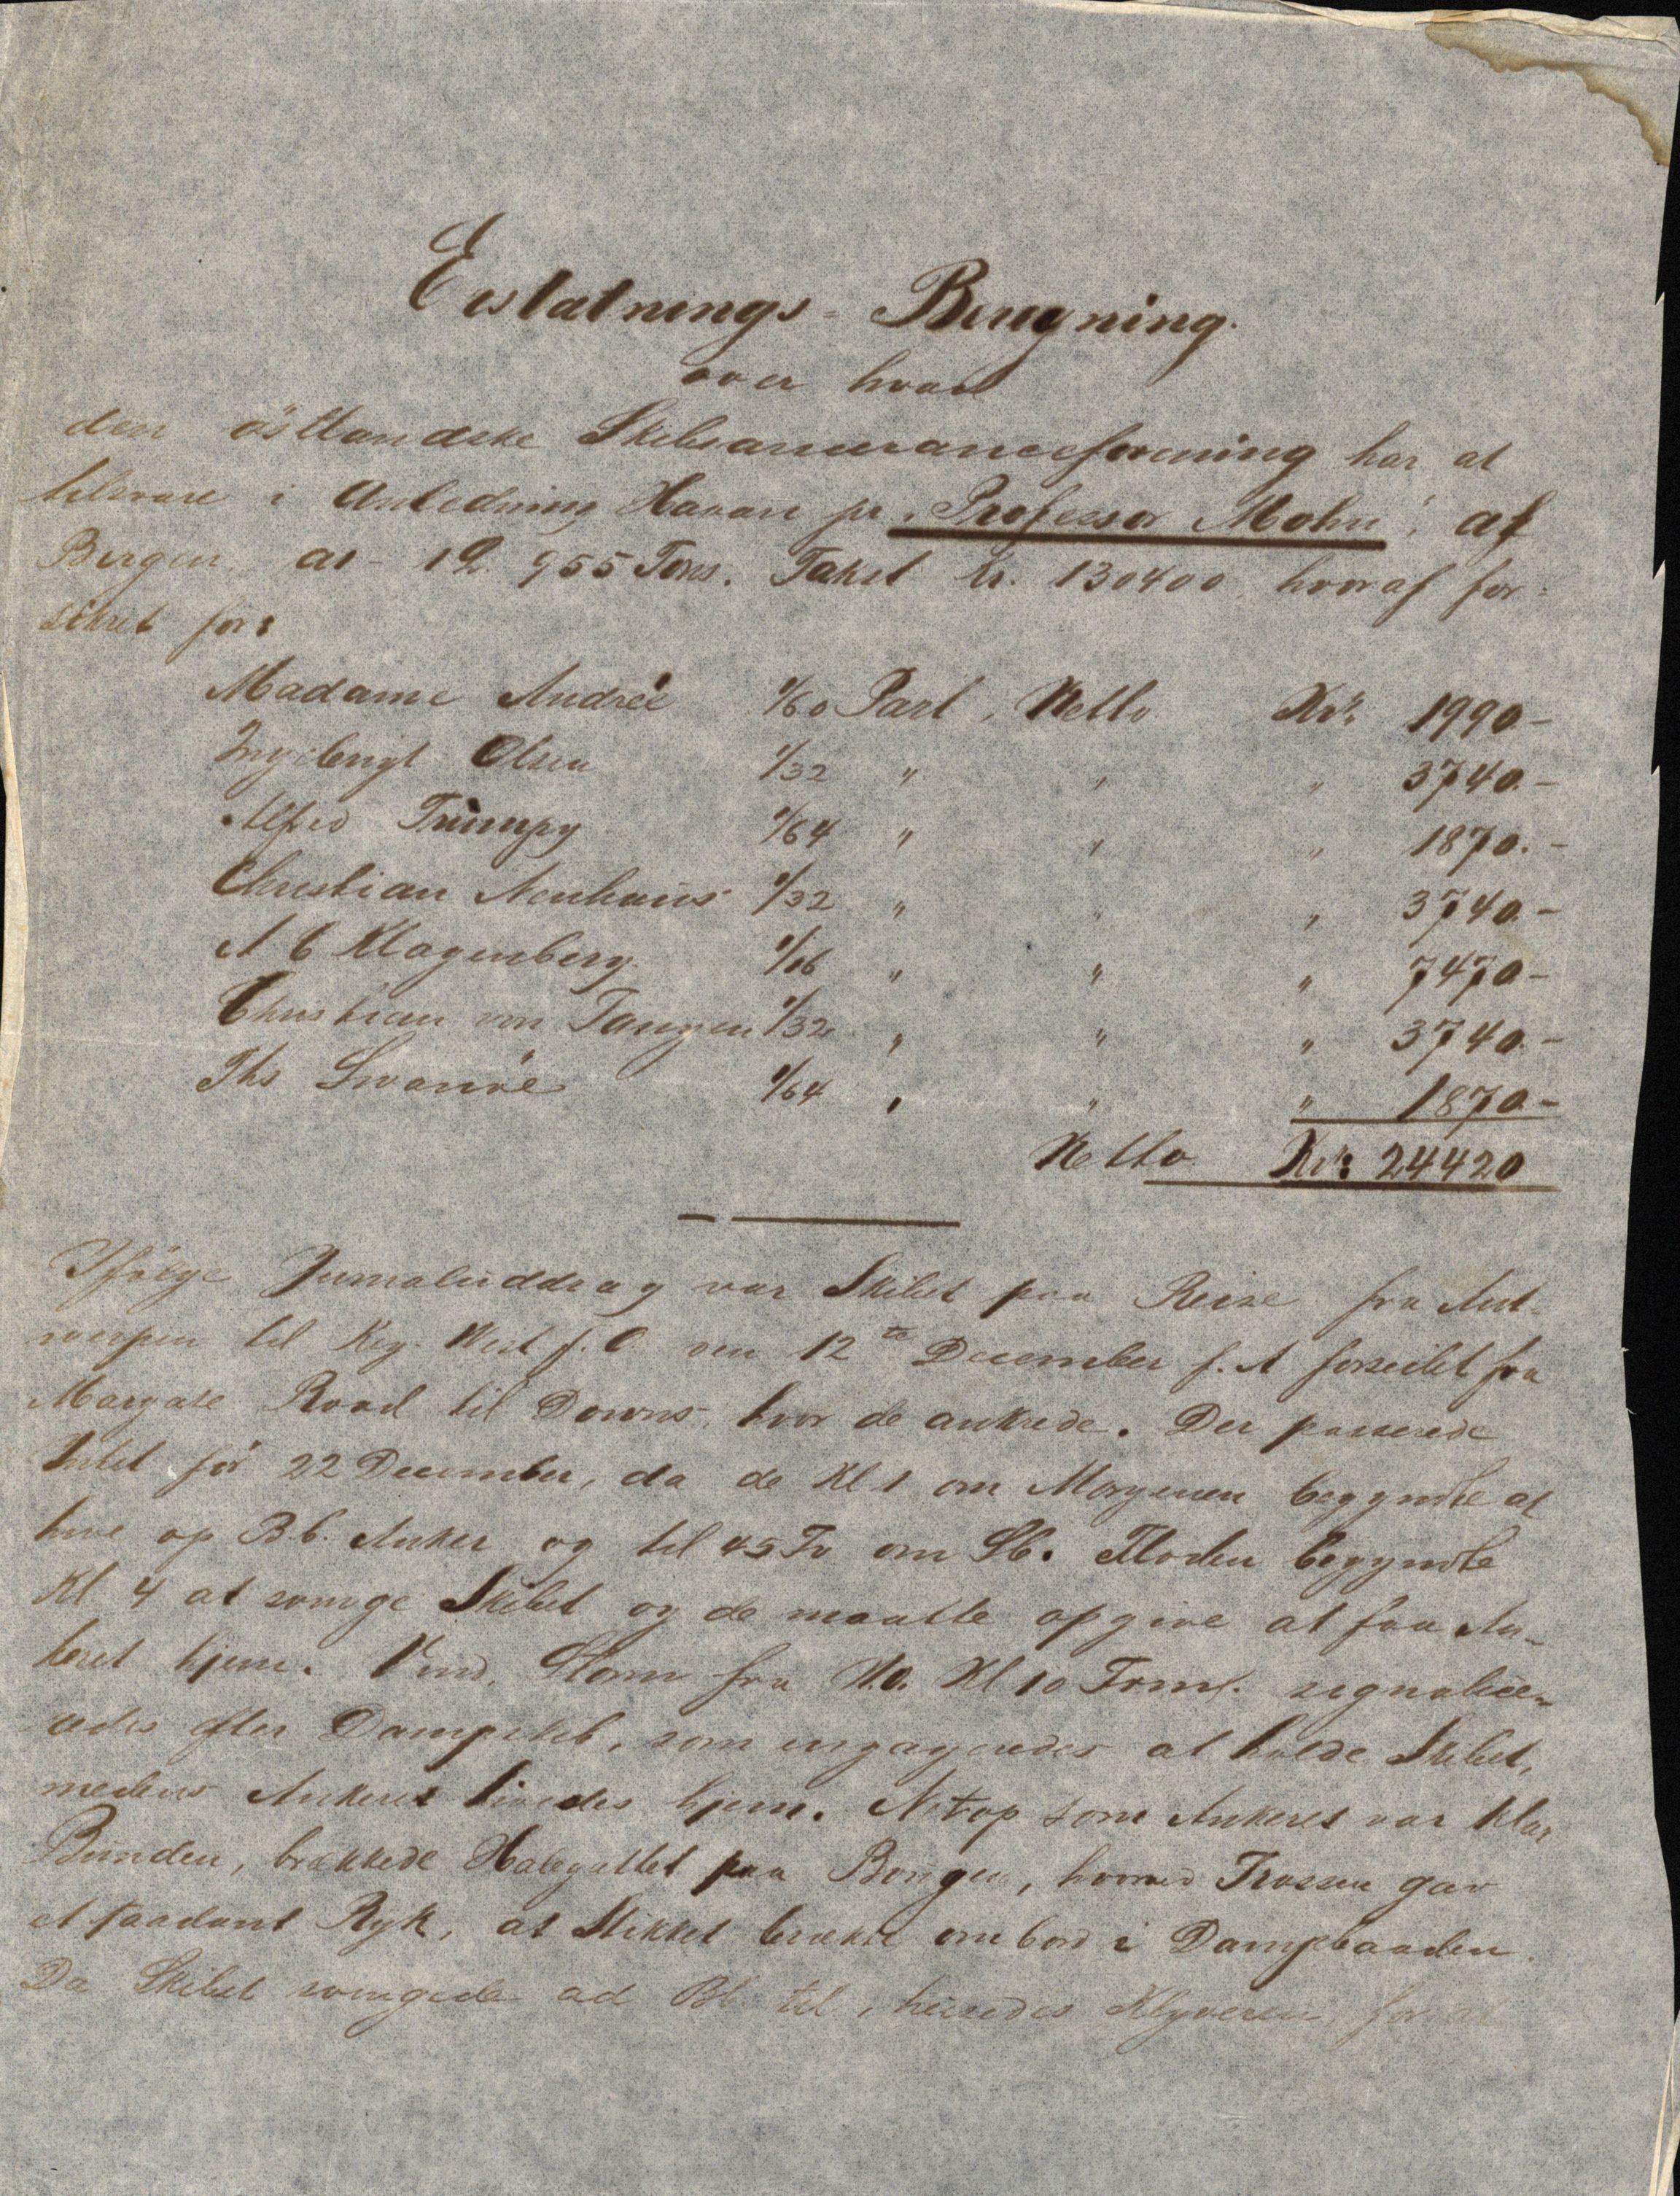 Erstatnings-Beregning.
over hvad
den östlandske Skibsassuranceforening har at
tilsvare i Anledning Havari pr. "Professor Mohn", af
Bergen, a1-12 955 Tons. Takst Kr. 130400 hvoraf for-
sikret for:
Madame Andreé 1/60 Part, Netto Kr. 1990.-
Ingebrigt Olsen 1/32 " " " 3740.-
Alfred Trumpy 1/64 " " " 1870.-
Christian Neuhaus 1/32 " " " 3740.-
A C Klagenberg. 1/16 " " " 7470-
Christian von Tangen 1/32 " " " 3740.-
Ths Svanöe 1/64 " " " 1870-
Netto Kr: 24420
Ifölge Jurnaluddrag var Skibet paa Reise fra Ant-
werpen til Key-West f. O. den 12te December f. A forseilet fra
Margate Road til Downs, hvor de ankrede. Der passerede
Intet för 22 December, da de Kl 1 om Morgenen begyndte at
hive op Bb. Anker og til 45 Fv om Sb. Floden begyndte
Kl 4 at svinge Skibet og de maatte opgive at faa An-
keret hjem. Vind, Storm fra N.O. Kl 10 Form. signalise-
redes efter Dampskib, som engageredes at holde Skibet,
medens Ankeret hivedes hjem. Netop som Ankeret var klar
Bunden, brækkede Halegattet paa Bougen, hvorved Trossen gav
et saadant Ryk, at Stikket brække ombord i Dampbaaden.
Da Skibet svingede ad Bb. til, heisedes Klyveren, for at